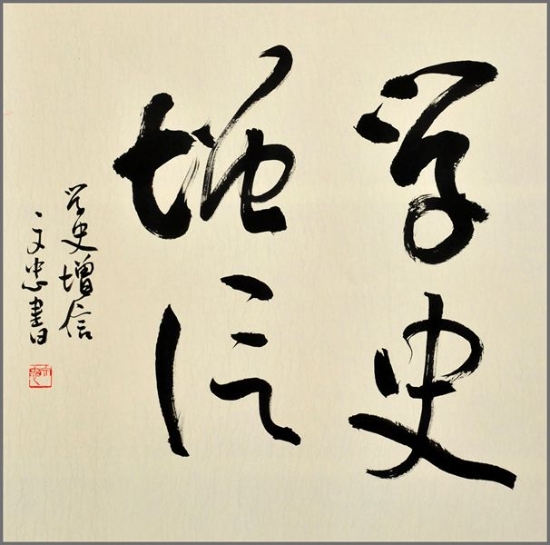 学史
增信
学史增信
文忠書